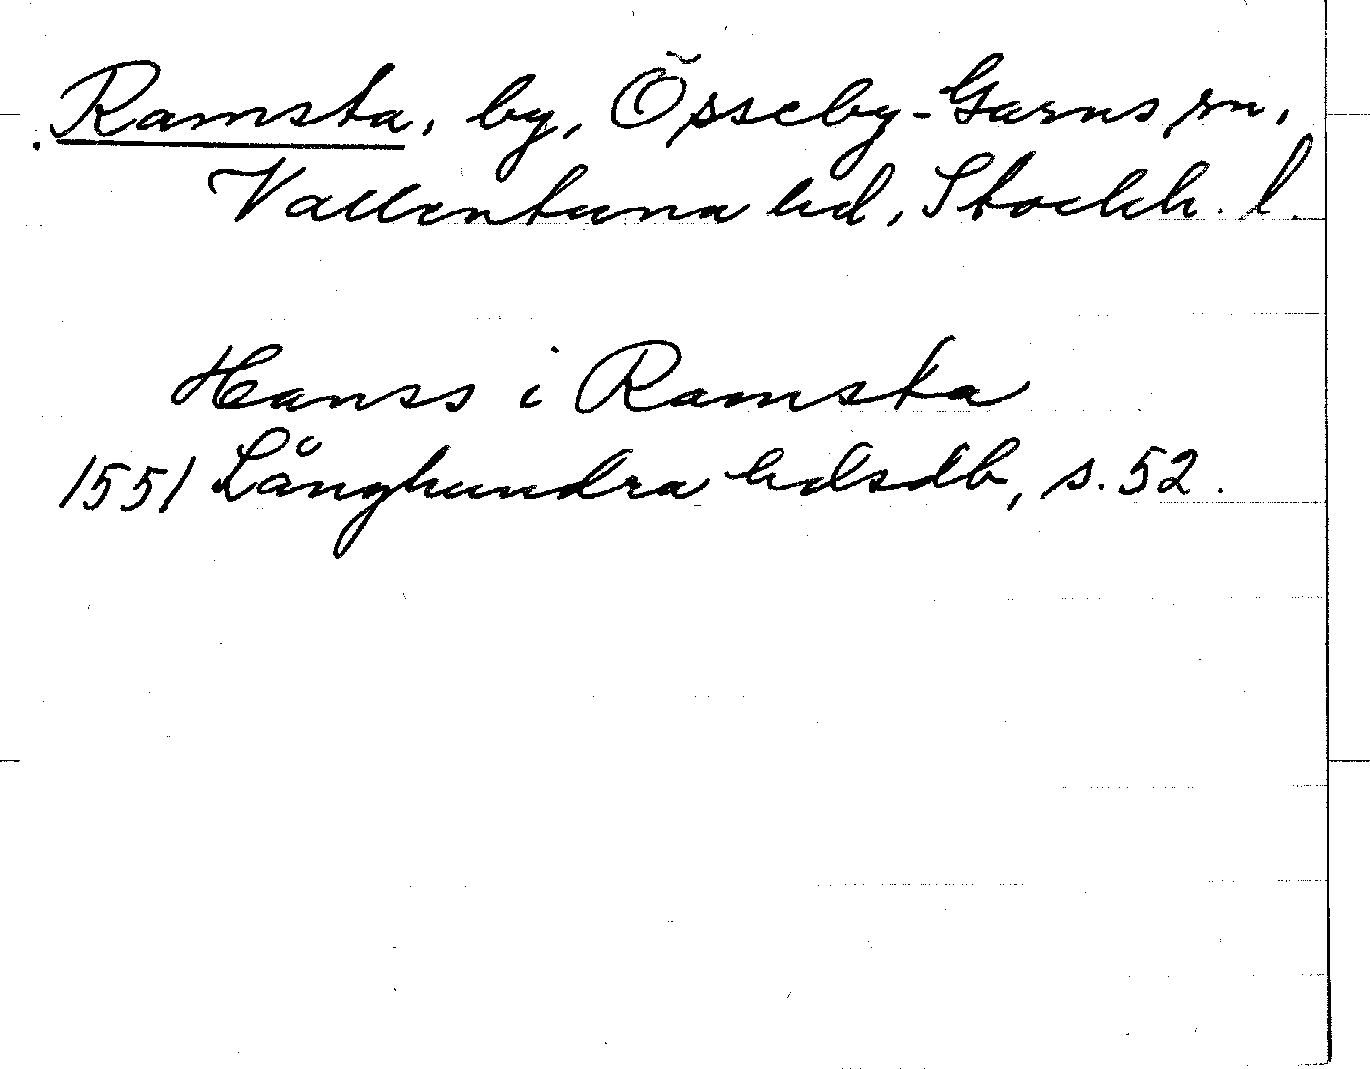 Ramsta, by, Össeby-Garns sn,
Vallentuna hd, Stockh. l.
Hanss i Ramsta
1551 Långhundra hdsdb, s. 52.